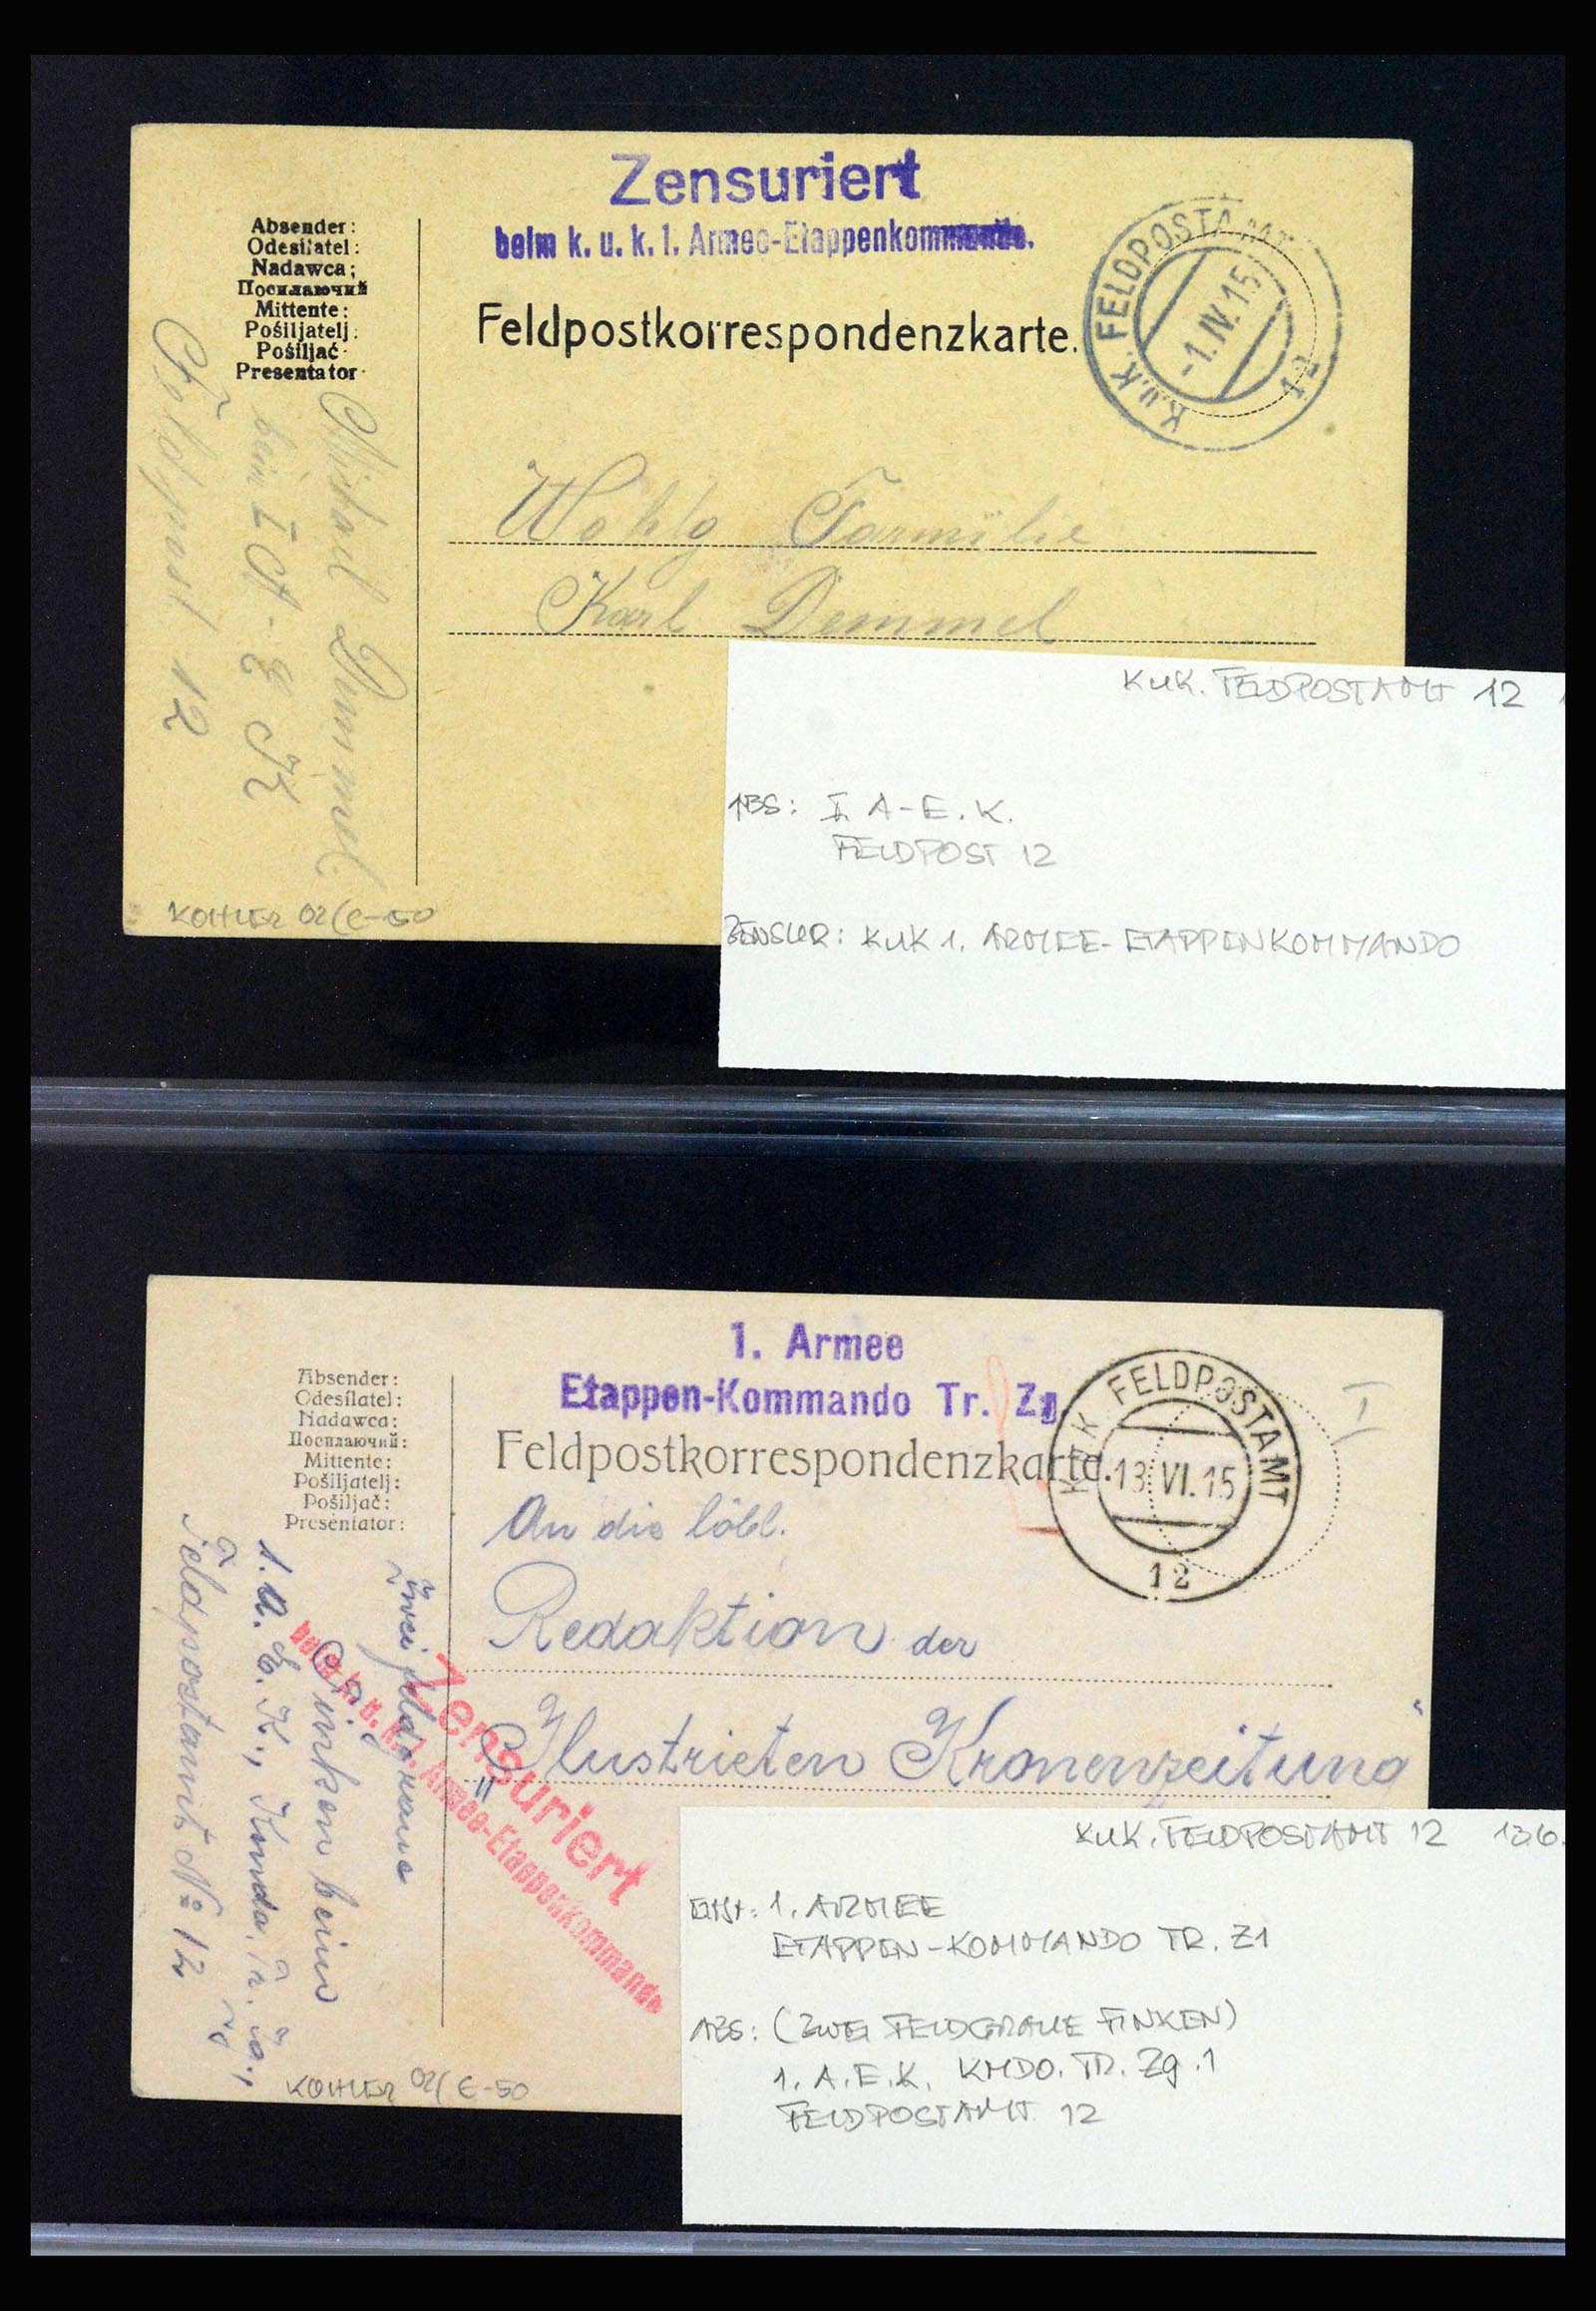 Zensuriert
beim k. u. k. 1. Armee-Etappenkommando.
Absender:
Odesílatel:
Nadawca:
Посилаючий
Mittente:
Pošiljatelj:
Pošiljač
Presentator
Feldpostkorrespondenzkarte.
K.u.K. FELDPOSTAMT
-1. IV. 15
12
beim I A-EK
Feldpost 12
Wohlg Familie
Karl Demmel
KOHLER 02/€-50
KUK. FELDPOSTAMT 12
ABS: I. A-E.K.
FELDPOST 12
ZENSUR: KUK 1. ARMEE-ETAPPENKOMMANDO
1. Armee
Etappen-Kommando Tr. Zg
Absender:
Odesílatel:
Nadawca:
Посилаючий:
Mittente:
Pošiljatelj:
Pošiljač:
Presentator:
Feldpostkorrespondenzkarte.
K.u.K. FELDPOSTAMT
13. VI. 15
12
Zwei feldgraue
Finken beim
1. A. E. K., Kmdo. Tr.
Feldpostamt No 12
An die löbl.
Redaktion der
"Ilustrieten Kronenzeitung"
Zensuriert
beim k. u. k. 1. Armee-Etappenkommando
KOHLER 02/€-50
KUK. FELDPOSTAMT 12 13.6.
1. ARMEE
ETAPPEN-KOMMANDO TR. Z1
ABS: (ZWEI FELDGRAUE FINKEN)
1. A.E.K. KMDO. TR. Zg. 1
FELDPOSTAMT 12